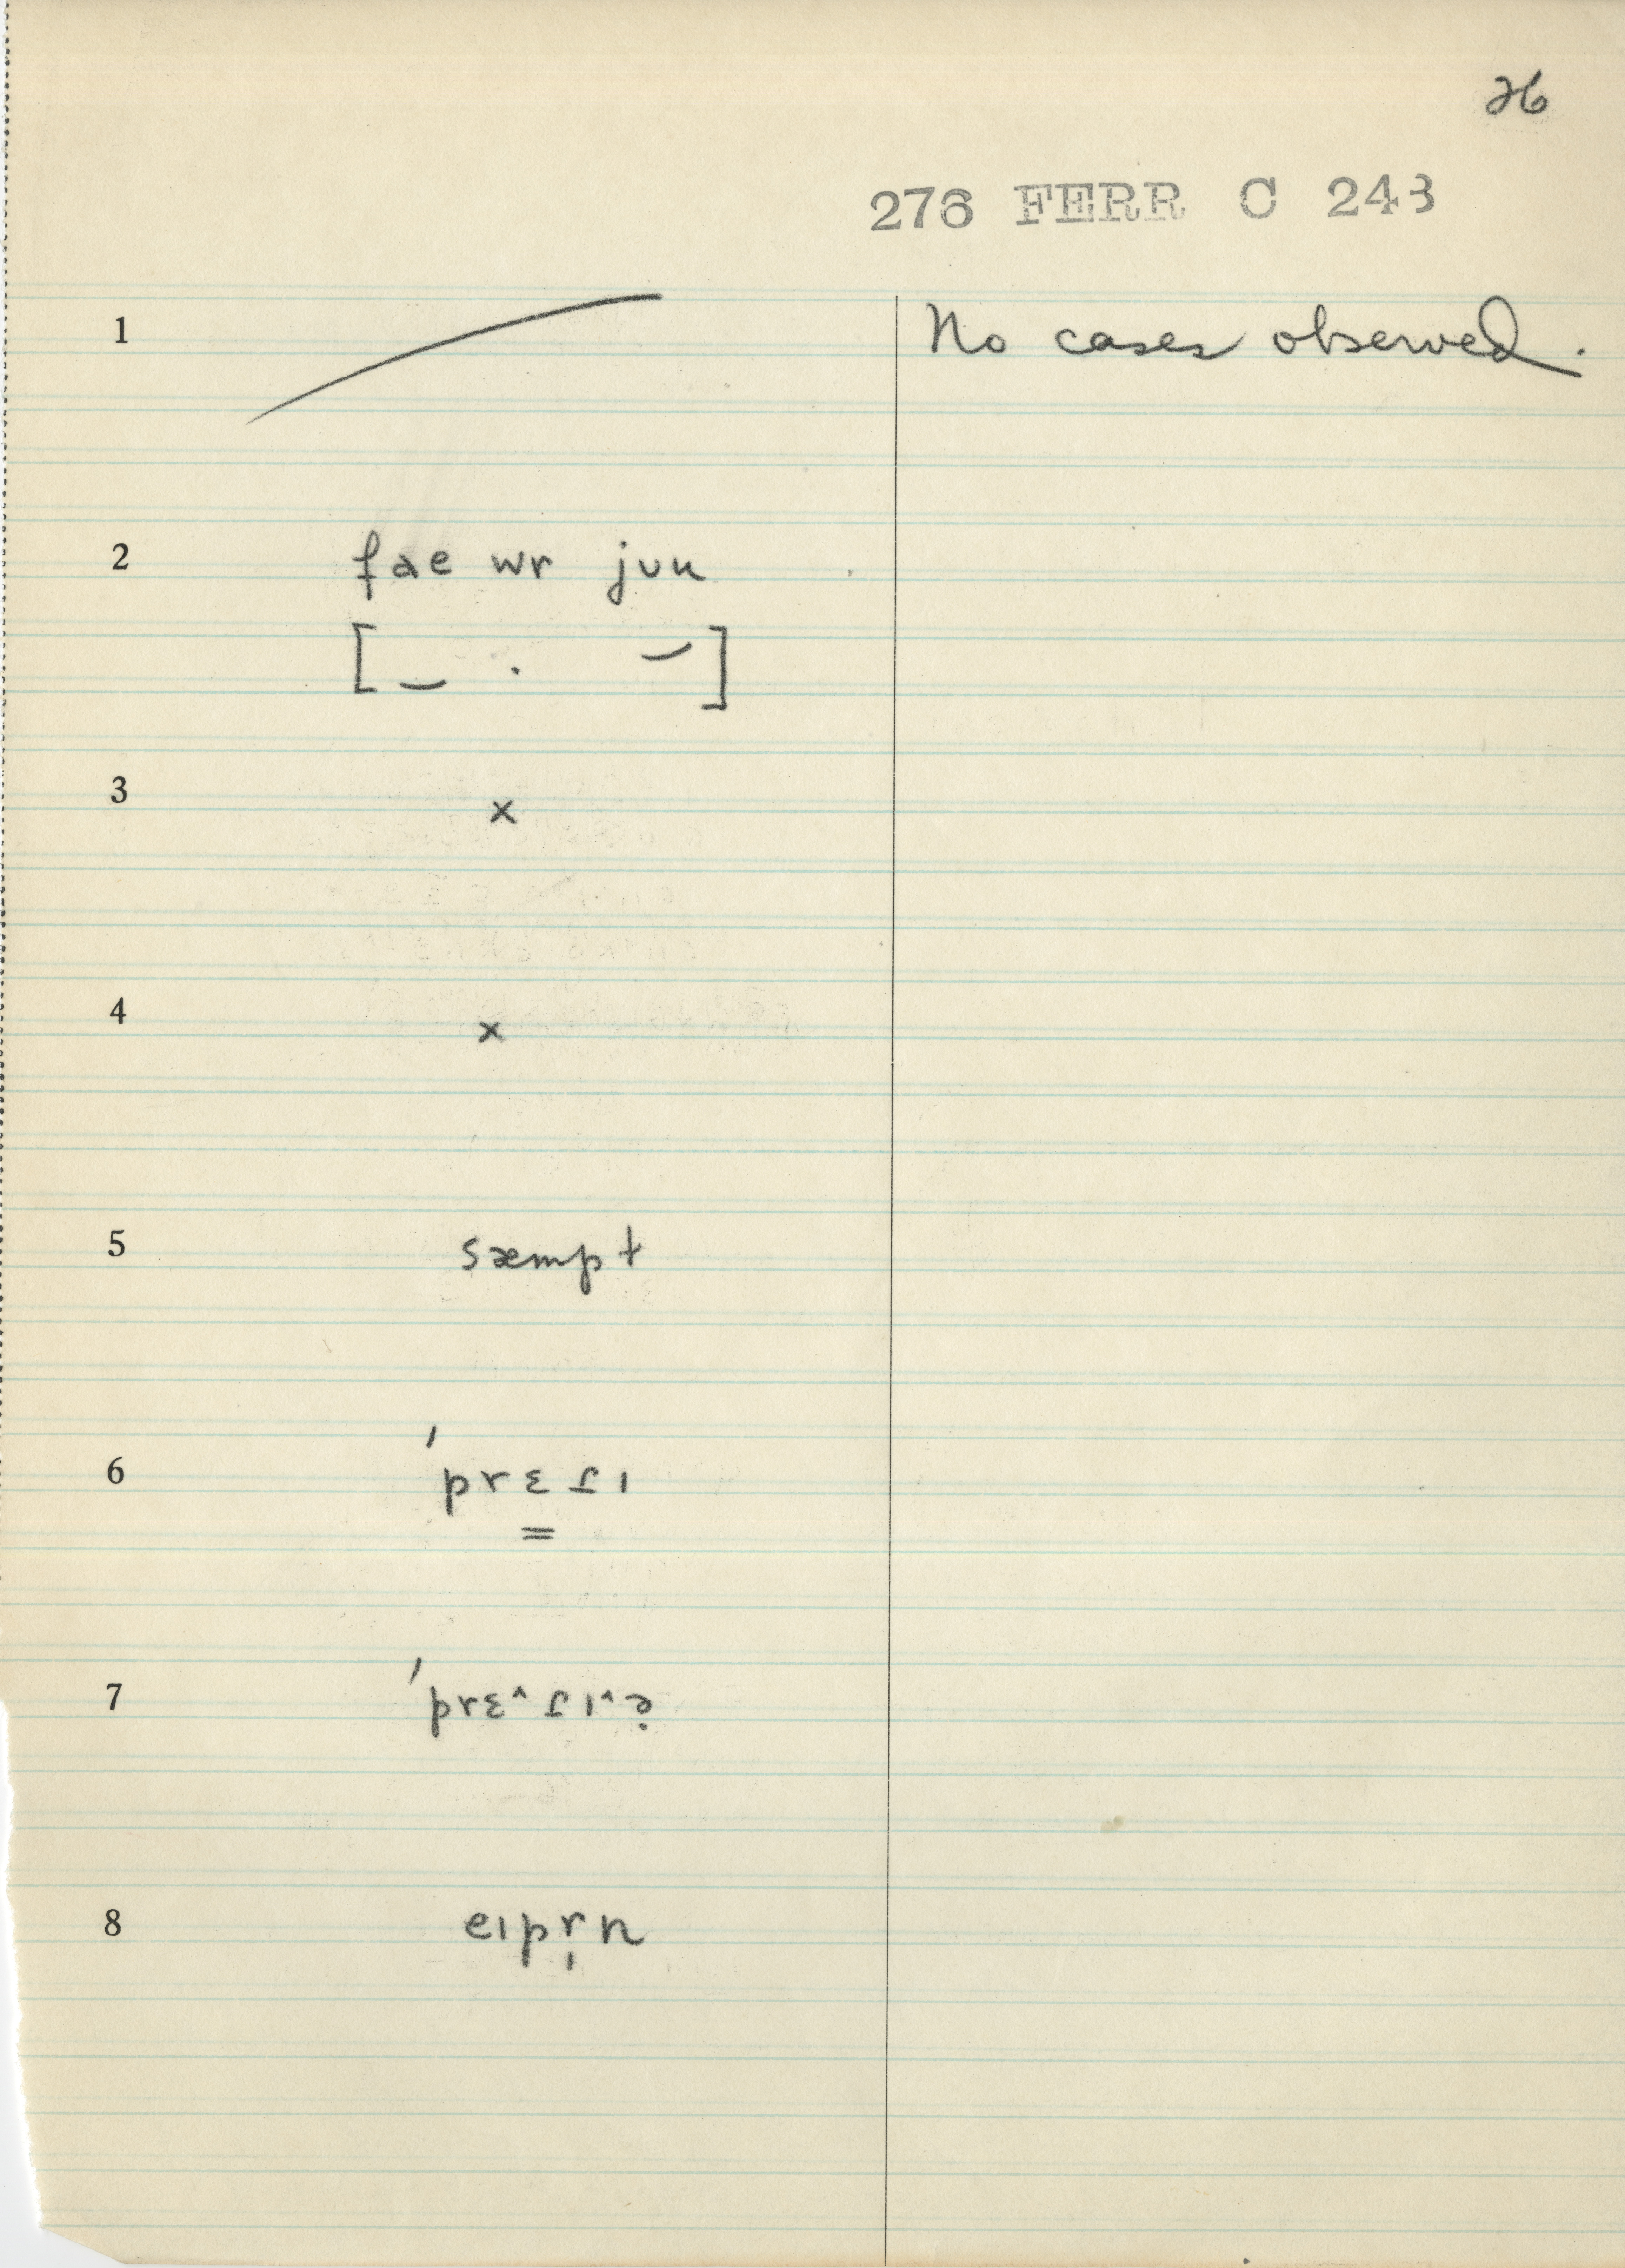 26
276 FERR C 243
1 No cases observed.
2 fae wr jʊu
[ – · – ]
3 x
4 x
5 sæmpt
6 ˈprɛʃɪ
7 ˈprɛ^ʃɪ^
8 eɪpr̩n